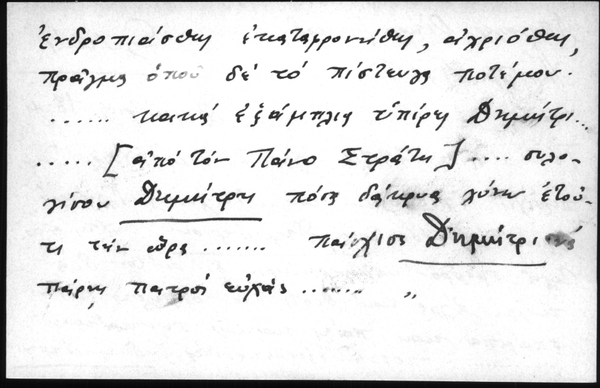 ἐνδροπιάσθης ἐκαταφρονήθης, ἀχριόθης,
πρᾶγμα ὁποῦ δέ τό πίστευγα ποτέ μου.
...... κακά ἐξάμπλια ὑπίρες Δημήτρι...
..... [ἀπό τόν Πάνο Στράτη] .... συλο-
γίσου Δημήτρη πόσα δάκρυα χύνω ἐτού-
τι τήν ὥρα ....... πάσχισε Δημήτρι νά
πάρης πατροί εὐχάς ....... "